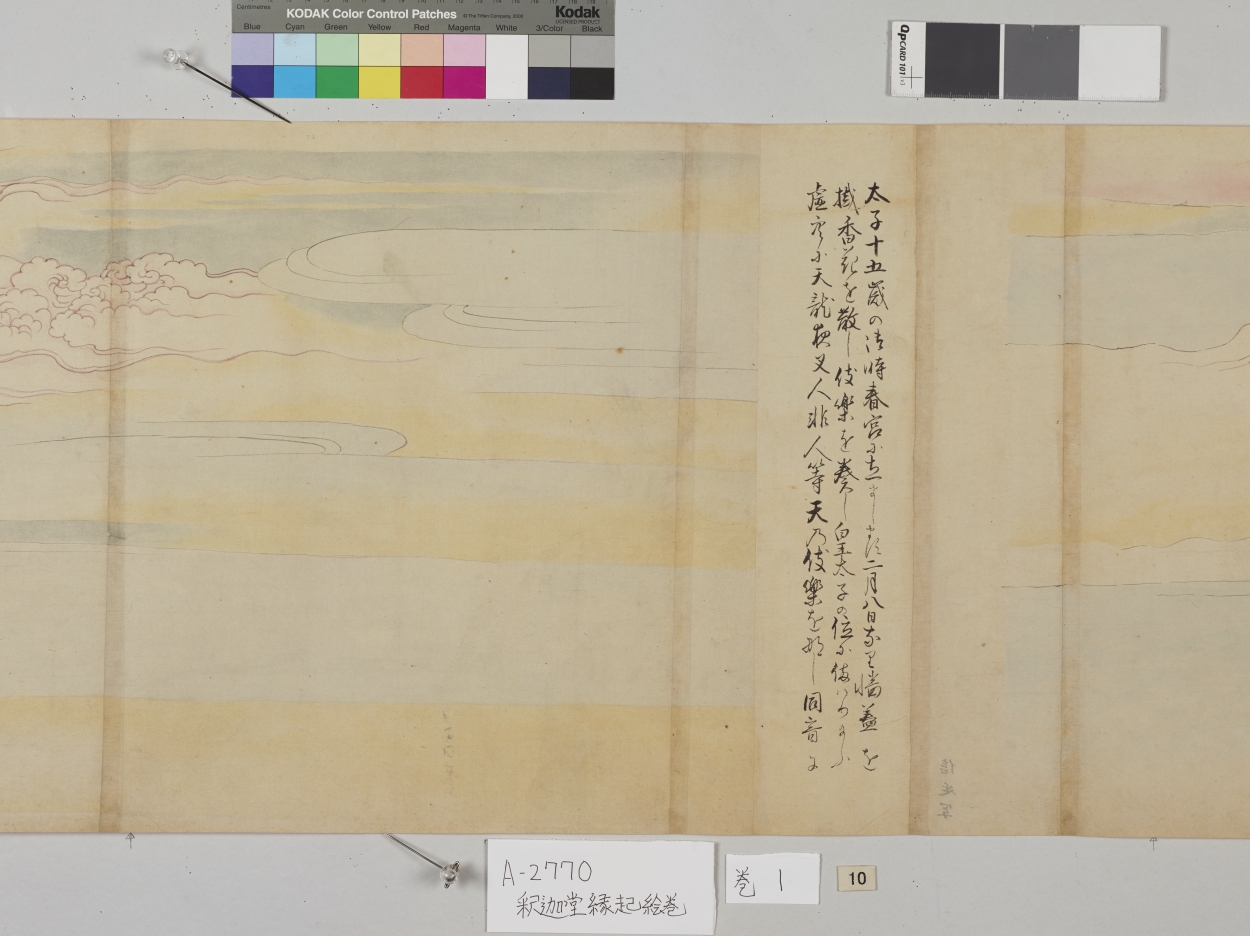 Centimetres
KODAK Color Control Patches
© The Tiffen Company, 2008
Kodak
LICENSED PRODUCT
Blue Cyan Green Yellow Red Magenta White 3/Color Black
QPCARD 101
太子十五歳の御時春宮に立まします二月八日なり幡蓋を
擬香花を散し伎樂を奏し白王太子の位に備はりたまふ
虚空に天龍夜叉人非人等天乃伎樂を那し同音に
A-2770
釈迦堂縁起絵巻
巻 1
10